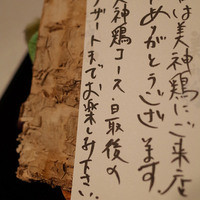 は美神鶏にご来店
めがとうございます
美神鶏コース、最後の
デザートまでお楽しみ下さい。